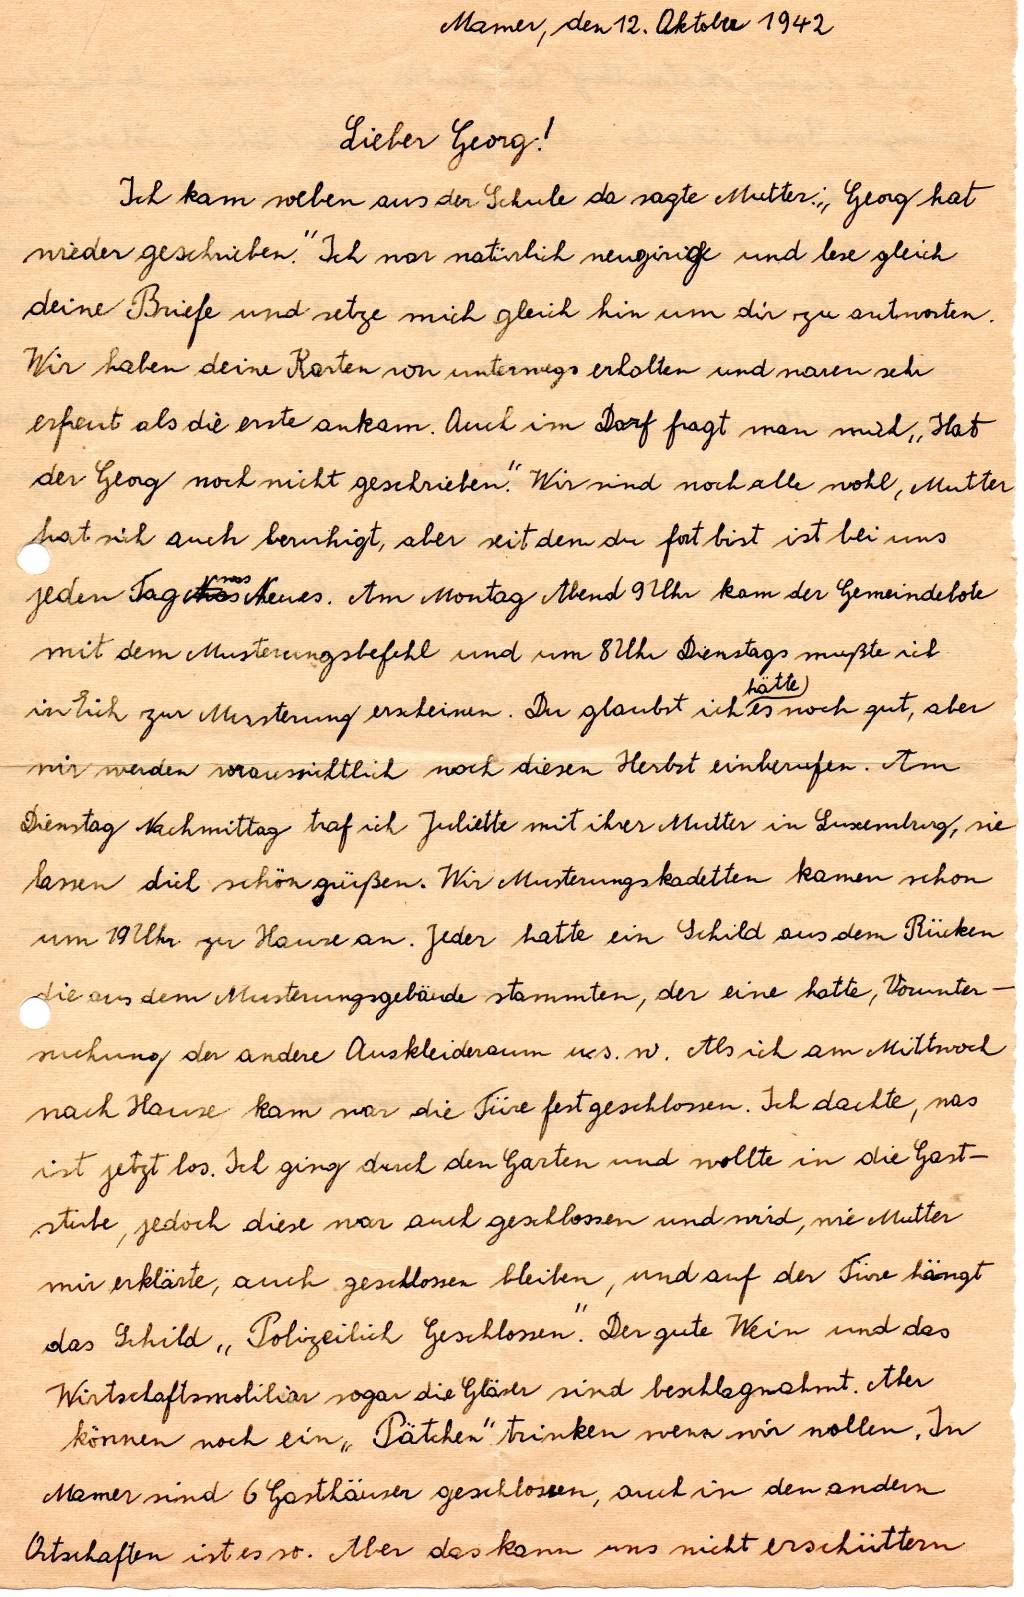 Mamer, den 12. Oktober 1942
Lieber Georg!
Ich kam soeben aus der Schule da sagte Mutter: „Georg hat
wieder geschrieben." Ich war natürlich neugirige und lese gleich
deine Briefe und setze mich gleich hin um dir zu antworten.
Wir haben deine Karten von unterwegs erhalten und waren sehr
erfreut als die erste ankam. Auch im Dorf fragt man mich „Hat
der Georg noch nicht geschrieben". Wir sind noch alle wohl, Mutter
hat sich auch beruhigt, aber seit dem du fort bist ist bei uns
jeden Tag was Neues. Am Montag Abend 9 Uhr kam der Gemeindebote
mit dem Musterungsbefehl und um 8 Uhr Dienstags mußte ich
in Eich zur Musterung erscheinen. Du glaubst ich hätte es noch gut, aber
wir werden voraussichtlich noch diesen Herbst einberufen. Am
Dienstag Nachmittag traf ich Juliette mit ihrer Mutter in Luxemburg, sie
lassen dich schön grüßen. Wir Musterungskadetten kamen schon
um 19 Uhr zu Hause an. Jeder hatte ein Schild aus dem Rücken
die aus dem Musterungsgebäude stammten, der eine hatte, Vorunter-
suchung der andere Auskleideraum u.s.w. Als ich am Mittwoch
nach Hause kam war die Türe fest geschlossen. Ich dachte, was
ist jetzt los. Ich ging durch den Garten und wollte in die Gast-
stube, jedoch diese war auch geschlossen und wird, wie Mutter
mir erklärte, auch geschlossen bleiben, und auf der Türe hängt
das Schild „Polizeilich Geschlossen". Der gute Wein und das
Wirtschaftsmobiliar sogar die Gläser sind beschlagnahmt. Aber
können noch ein „Pätchen" trinken wenn wir wollen. In
Mamer sind 6 Gasthäuser geschlossen, auch in den andern
Ortschaften ist es so. Aber das kann uns nicht erschüttern